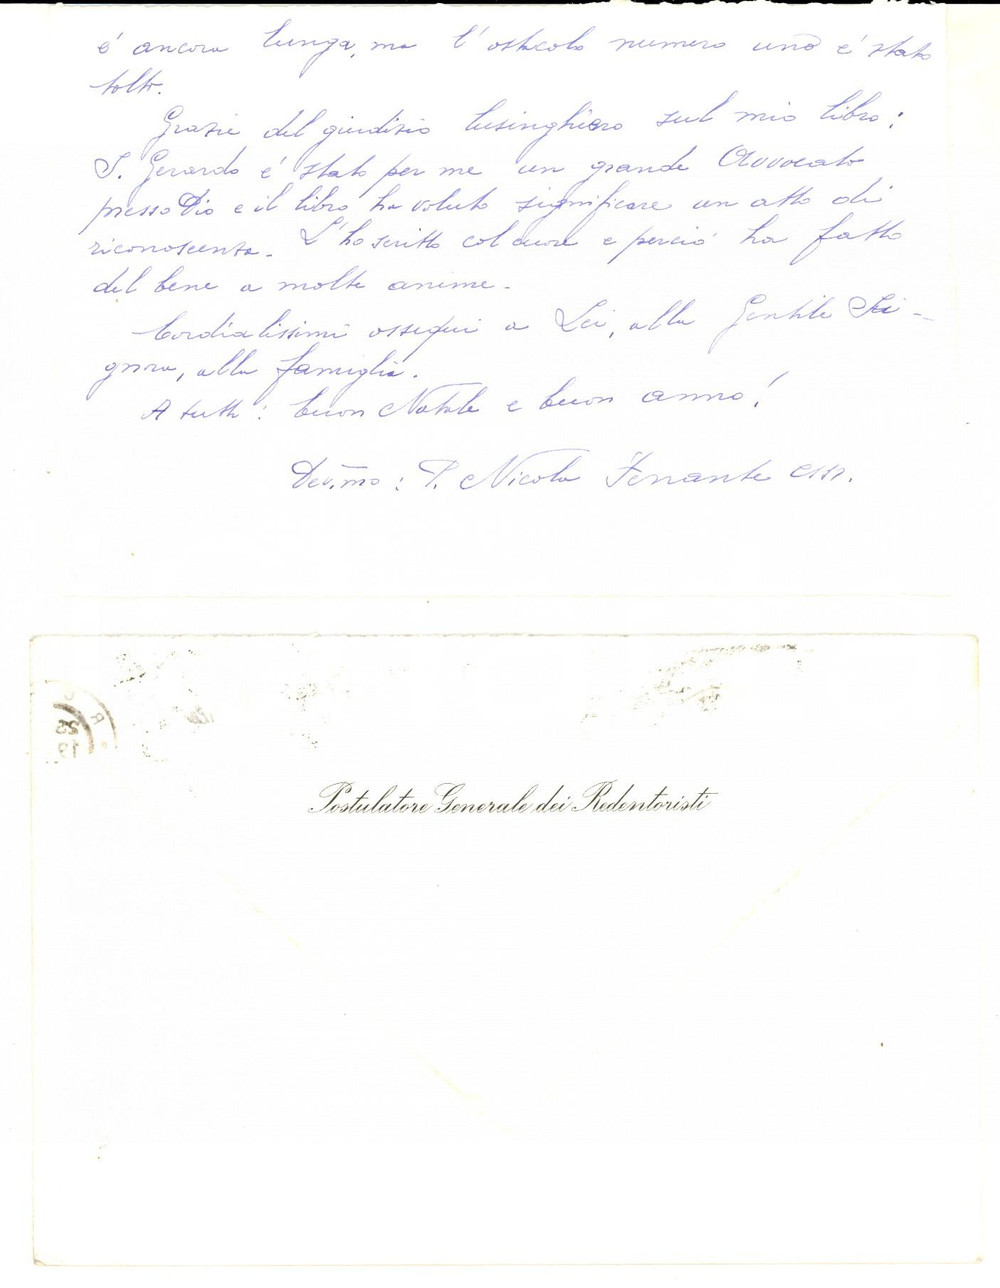 è ancora lunga, ma l'ostacolo numero uno è stato
tolto.
Grazie del giudizio lusinghiero sul mio libro:
S. Gerardo è stato per me un grande Avvocato
presso Dio e il libro ha voluto significare un atto di
riconoscenza. L'ho scritto col cuore e perciò ha fatto
del bene a molte anime.
Cordialissimi ossequi a Lei, alla Gentile Si-
gnora, alla famiglia.
A tutti: buon Natale e buon anno!
Dev.mo: P. Nicola Ferrante CSSR.
Postulatore Generale dei Redentoristi